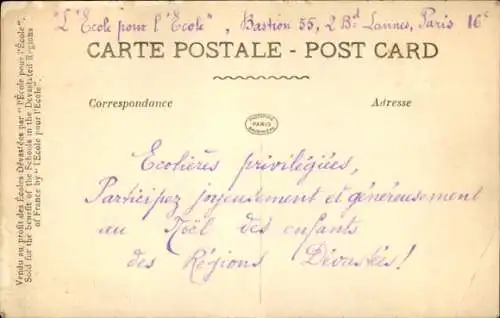 "L'Ecole pour l'Ecole", Bastion 55, 2 Bd Lannes, Paris 16e
CARTE POSTALE - POST CARD
Correspondance
Adresse
PARIS
Ecolières privilégiées,
Participez joyeusement et généreusement
au Noël des enfants
des Régions Dévastées!
Vendu au profit des Écoles Dévastées par "l'École pour l'École".
Sold for the Benefit of the Schools in the Devastated Regions
of France by "l'École pour l'École".